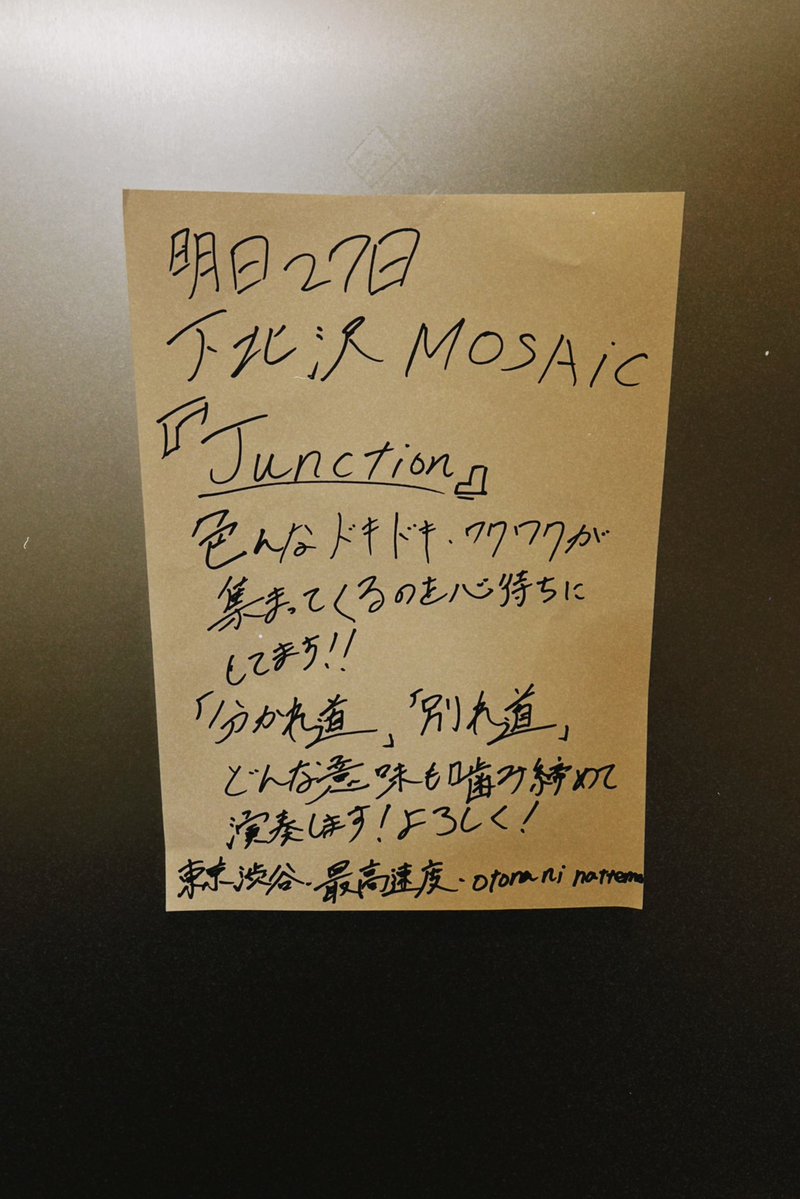 明日27日
下北沢 MOSAiC
『Junction』
色んなドキドキ・ワクワクが
集まってくるのを心待ちに
してます!!
「分かれ道」「別れ道」
どんな意味も噛み締めて
演奏します!よろしく!
東京渋谷・最高速度・otona ni nattemo